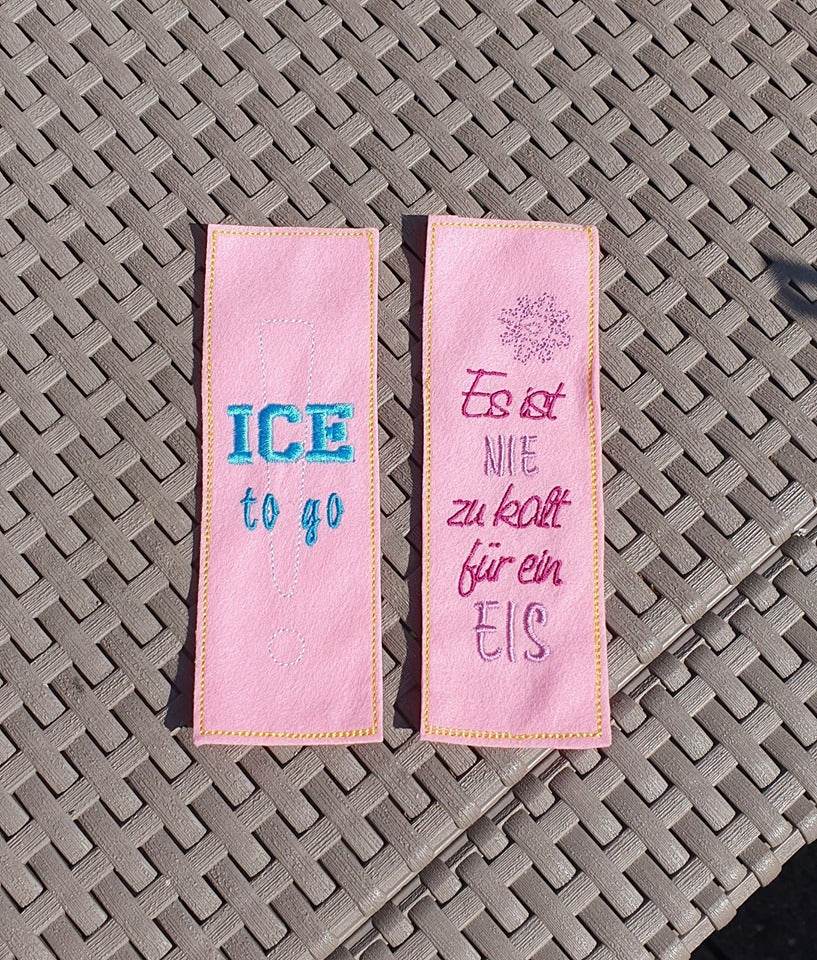 ICE
to go
Es ist
NIE
zu kalt
für ein
EIS